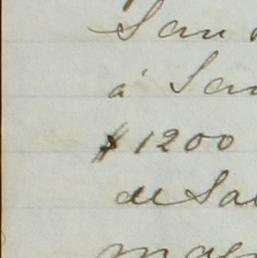 San
á San
$1200
de Sal